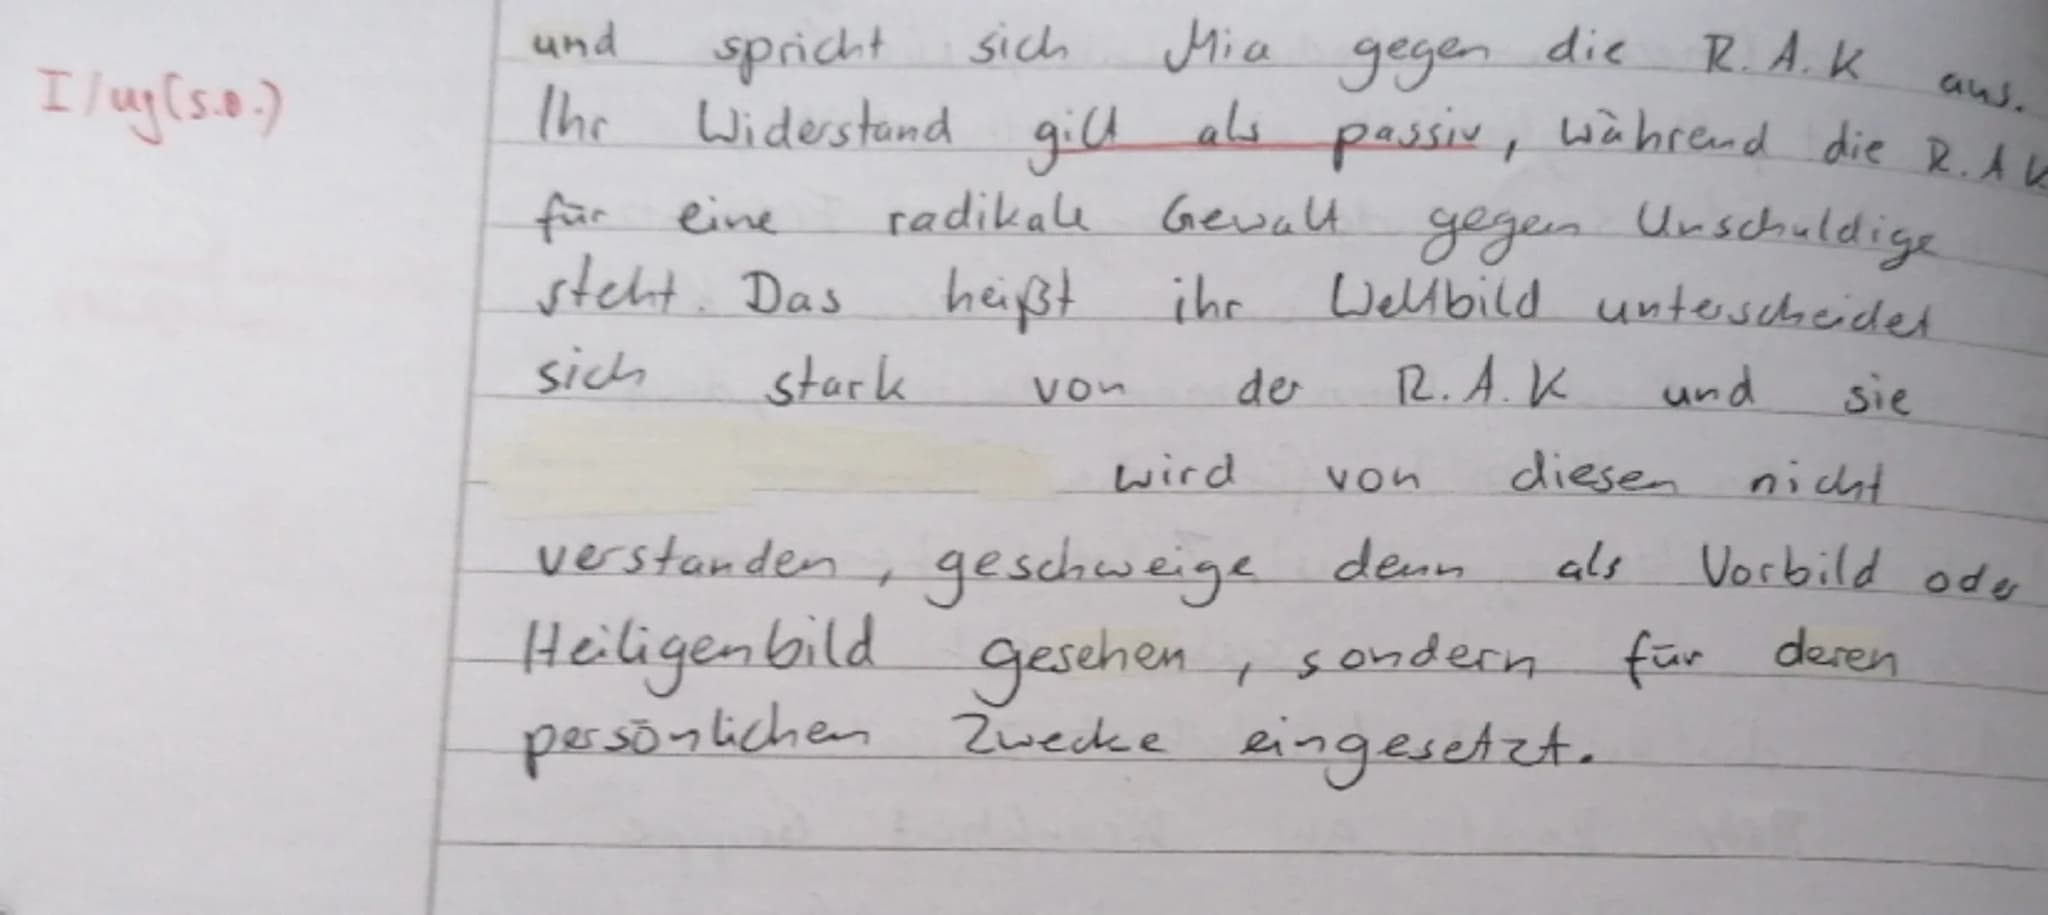 und spricht sich Mia gegen die R.A.K aus.
I/ug(s.o.)
Ihr Widerstand gilt als passiv, während die R.A K
für eine radikale Gewalt gegen Unschuldige
steht. Das heißt ihr Weltbild unterscheidet
sich stark von der R.A.K und sie
wird von diesen nicht
verstanden, geschweige denn als Vorbild oder
Heiligenbild gesehen, sondern für deren
persönlichen Zwecke eingesetzt.